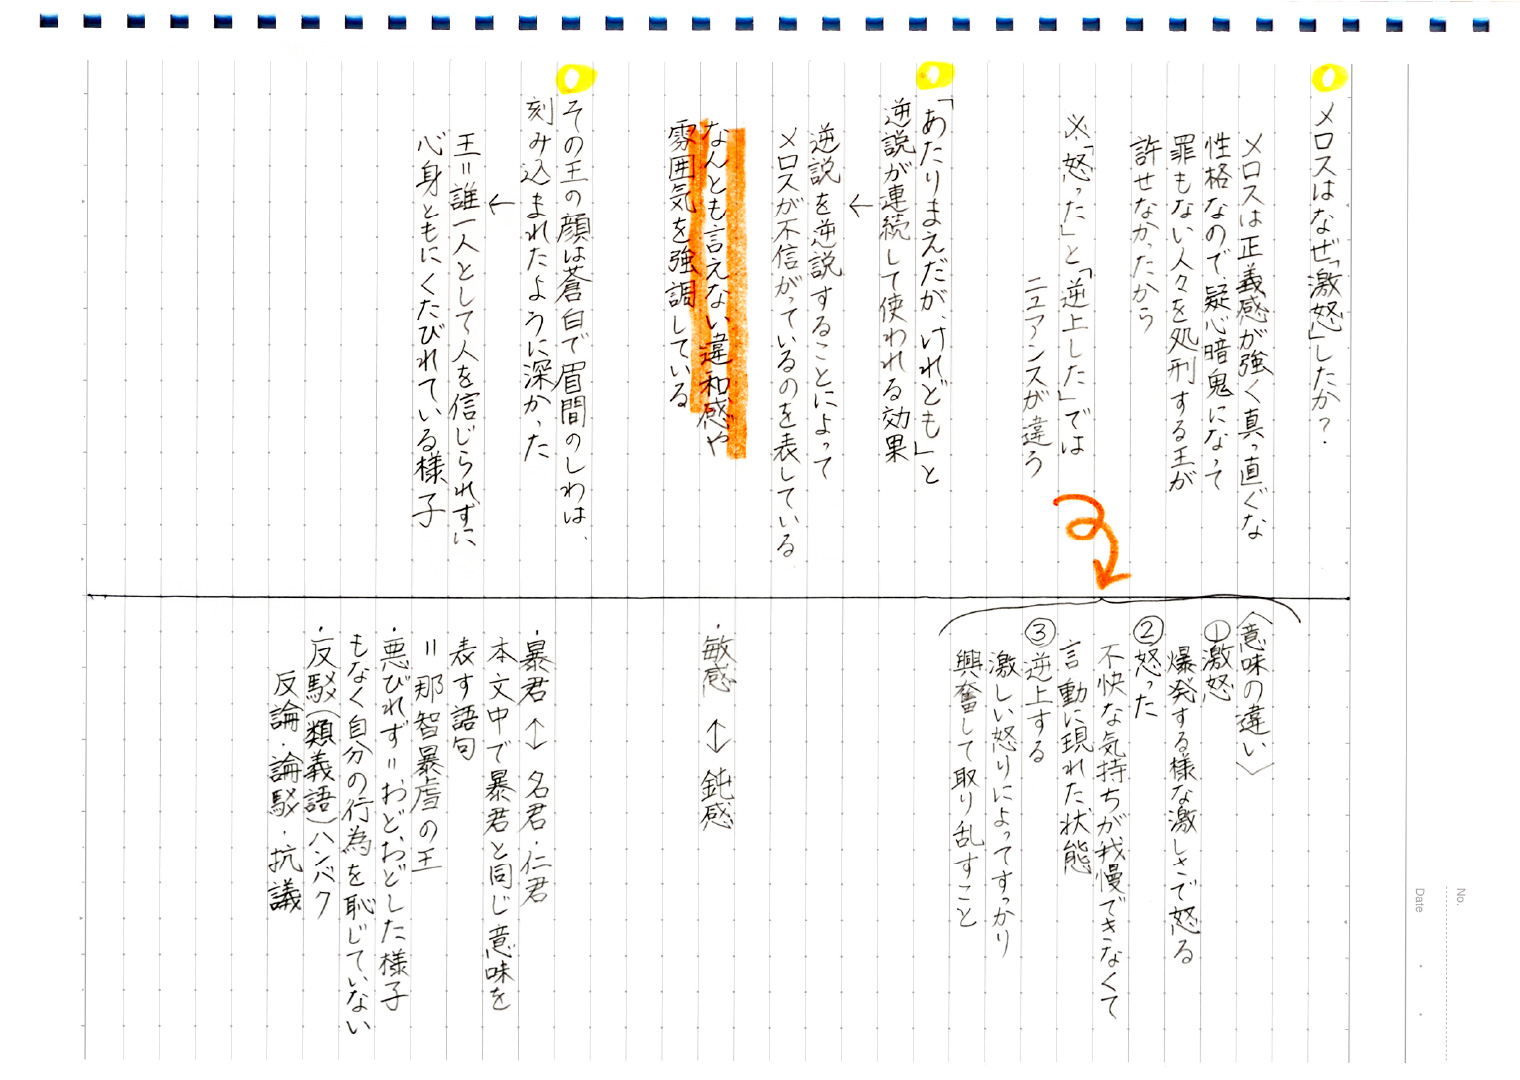 メロスはなぜ「激怒」したか？
メロスは正義感が強く真っ直ぐな
性格なので、疑心暗鬼になって
罪もない人々を処刑する王が
許せなかったから
※「怒った」と「逆上した」では
ニュアンスが違う
「あたりまえだが、けれども」と
逆説が連続して使われる効果
←
逆説を逆説することによって
メロスが不信がっているのを表している
なんとも言えない違和感や
雰囲気を強調している
その王の顔は蒼白で眉間のしわは、
刻み込まれたように深かった
←
王＝誰一人として人を信じられずに、
心身ともにくたびれている様子
〈意味の違い〉
①激怒
爆発する様な激しさで怒る
②怒った
不快な気持ちが我慢できなくて
言動に現れた状態
③逆上する
激しい怒りによってすっかり
興奮して取り乱すこと
・敏感 ↔ 鈍感
・暴君 ↔ 名君・仁君
本文中で暴君と同じ意味を
表す語句
＝那智暴虐の王
・悪びれず＝おどおどした様子
もなく自分の行為を恥じていない
・反駁（類義語）ハンバク
反論・論駁・抗議
No.
Date